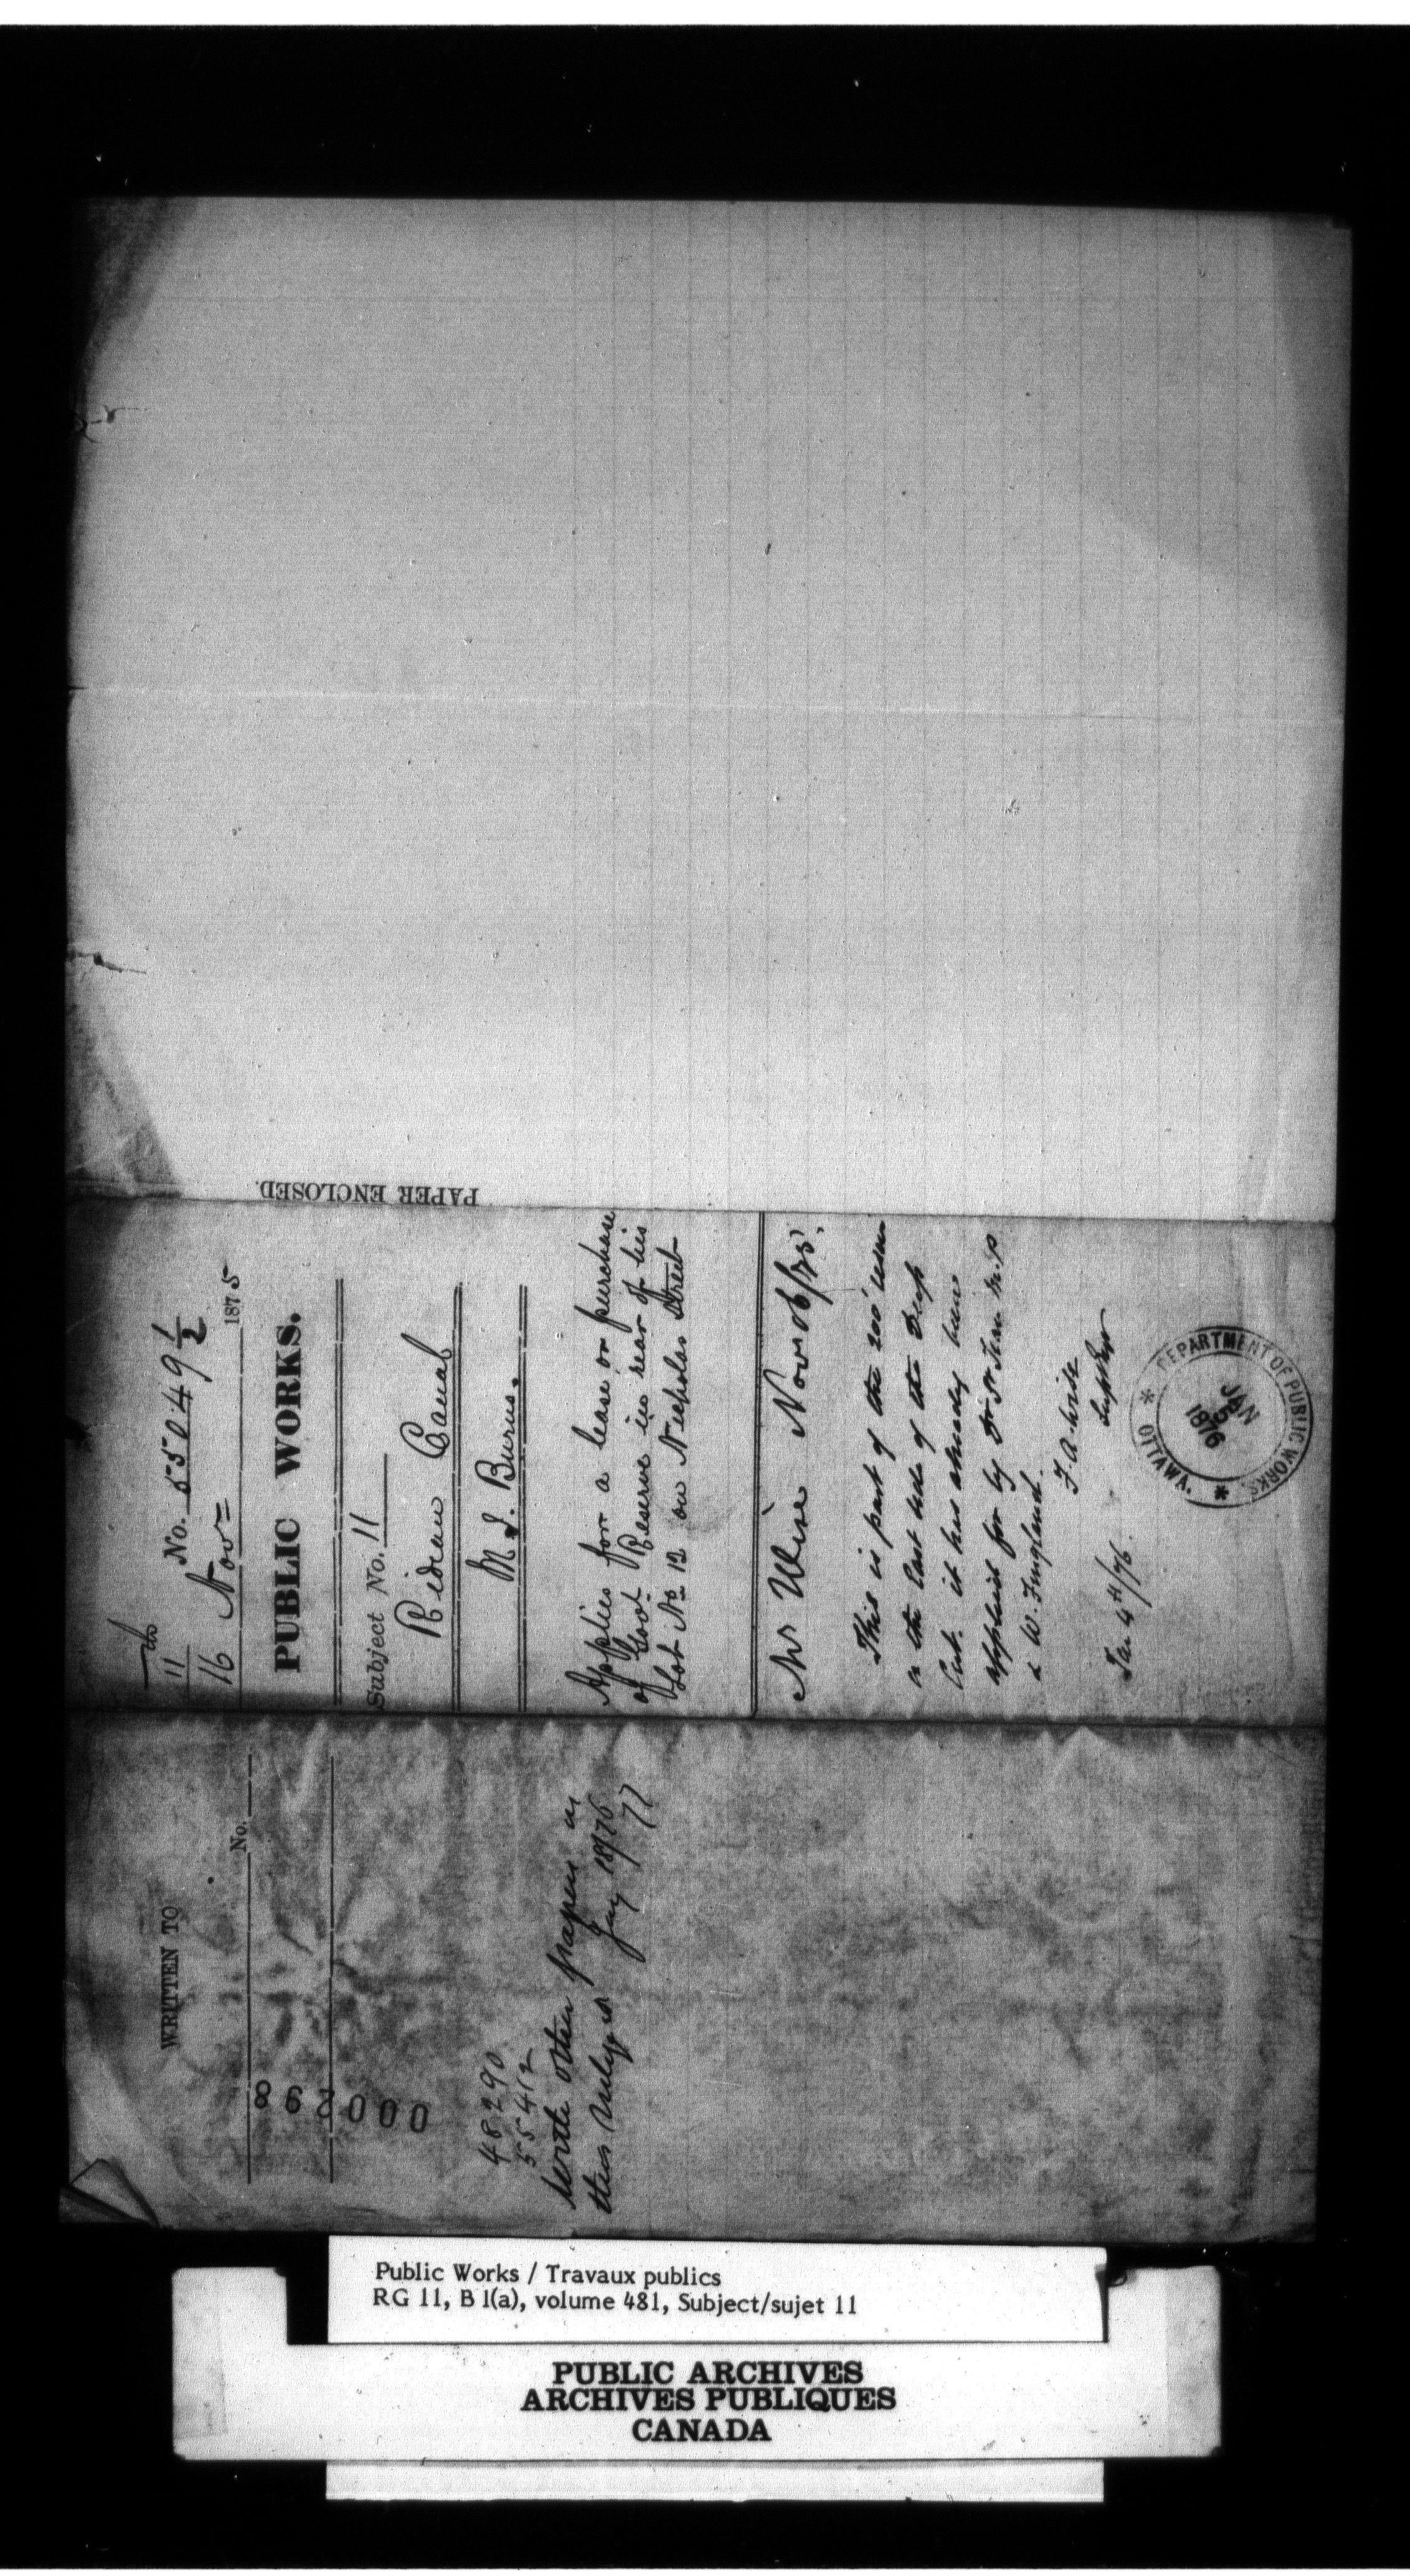 11
No. 55049 1/2
16 Nov= 1875
PUBLIC WORKS.
Subject No. 11
Rideau Canal
M. J. Burns.
Applies for a lease or purchase
of Govt Reserve in rear of his
Lot No 12 on Nicholas Street
Mr Wise Nov 26/75.
This is part of the 200'
on the East side of the Deep
Cut. it has already been
applied for by Dr St Jean M.P
& W. Fingland.
F. A. Wise
Jan 4th/76.
DEPARTMENT OF PUBLIC WORKS.
OTTAWA.
JAN
5
1876
PAPER ENCLOSED.
WRITTEN TO
No.
862000
48290
55412
With other papers in
this subject Jany 1876
77
Public Works / Travaux publics
RG 11, B 1(a), volume 481, Subject/sujet 11
PUBLIC ARCHIVES
ARCHIVES PUBLIQUES
CANADA